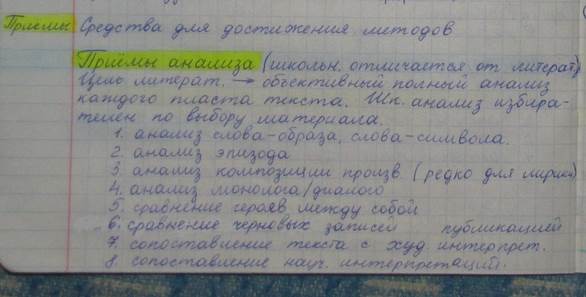 Приемы Средства для достижения методов
Приёмы анализа (школьн. отличается от литерат)
Цель литерат. → объективный полный анализ
каждого пласта текста. Шк. анализ избира-
телен по выбору материала.
1. анализ слова-образа, слова-символа.
2. анализ эпизода
3. анализ композиции произв. (редко для лирики)
4. анализ монолога/диалога
5. сравнение героев между собой
6. сравнение черновых записей публикацией
7. сопоставление текста с худ интерпрет.
8. сопоставление науч. интерпретаций.